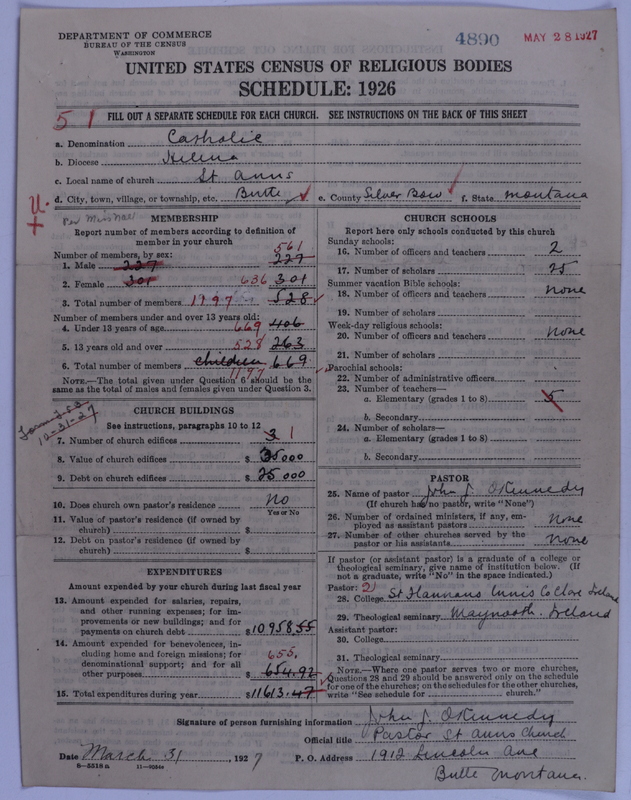 DEPARTMENT OF COMMERCE
BUREAU OF THE CENSUS
WASHINGTON
4890 MAY 28 1927
UNITED STATES CENSUS OF RELIGIOUS BODIES
SCHEDULE: 1926
51 FILL OUT A SEPARATE SCHEDULE FOR EACH CHURCH. SEE INSTRUCTIONS ON THE BACK OF THIS SHEET
a. Denomination Catholic
b. Diocese Helena
c. Local name of church St Anns
d. City, town, village, or township, etc. Butte e. County Silver Bow f. State Montana
U.
MEMBERSHIP
Report number of members according to definition of
member in your church
Number of members, by sex: 561
1. Male 227 227
2. Female 301 636 301
3. Total number of members 1197 528
Number of members under and over 13 years old:
4. Under 13 years of age 669 406
5. 13 years old and over 528 263
6. Total number of members children 669
1197
NOTE.—The total given under Question 6 should be the
same as the total of males and females given under Question 3.
10-31-27
CHURCH BUILDINGS
See instructions, paragraphs 10 to 12
7. Number of church edifices 3 1
8. Value of church edifices $ 35000
9. Debt on church edifices $ 25000
10. Does church own pastor's residence No
Yes or No
11. Value of pastor's residence (if owned by
church) $
12. Debt on pastor's residence (if owned by
church) $
EXPENDITURES
Amount expended by your church during last fiscal year
13. Amount expended for salaries, repairs,
and other running expenses; for im-
provements or new buildings; and for
payments on church debt $10958.55
14. Amount expended for benevolences, in-
cluding home and foreign missions; for 655.
denominational support; and for all
other purposes $ 654.92
15. Total expenditures during year $11613.47
CHURCH SCHOOLS
Report here only schools conducted by this church
Sunday schools:
16. Number of officers and teachers 2
17. Number of scholars 25
Summer vacation Bible schools:
18. Number of officers and teachers none
19. Number of scholars
Week-day religious schools:
20. Number of officers and teachers none
21. Number of scholars
Parochial schools:
22. Number of administrative officers
23. Number of teachers—
a. Elementary (grades 1 to 8) 5
b. Secondary
24. Number of scholars—
a. Elementary (grades 1 to 8)
b. Secondary
PASTOR
25. Name of pastor John J. O'Kennedy
(If church has no pastor, write "None")
26. Number of ordained ministers, if any, em-
ployed as assistant pastors none
27. Number of other churches served by the
pastor or his assistants none
If pastor (or assistant pastor) is a graduate of a college or
theological seminary, give name of institution below. (If
not a graduate, write "No" in the space indicated.)
Pastor: 2
28. College St Flannans Innis Co Clare Ireland
29. Theological seminary Maynooth. Ireland
Assistant pastor:
30. College
31. Theological seminary
NOTE.—Where one pastor serves two or more churches,
Questions 28 and 29 should be answered only on the schedule
for one of the churches; on the schedules for the other churches,
write "See schedule for church."
Signature of person furnishing information John J. O'Kennedy
Official title Pastor St Anns Church
Date March 31, 1927 P. O. Address 1912 Lincoln Ave
8-5518a 11-9054a
Butte Montana.